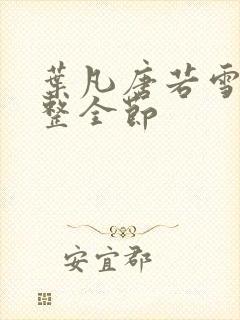 葉凡唐若雪
整全節
安宜郡